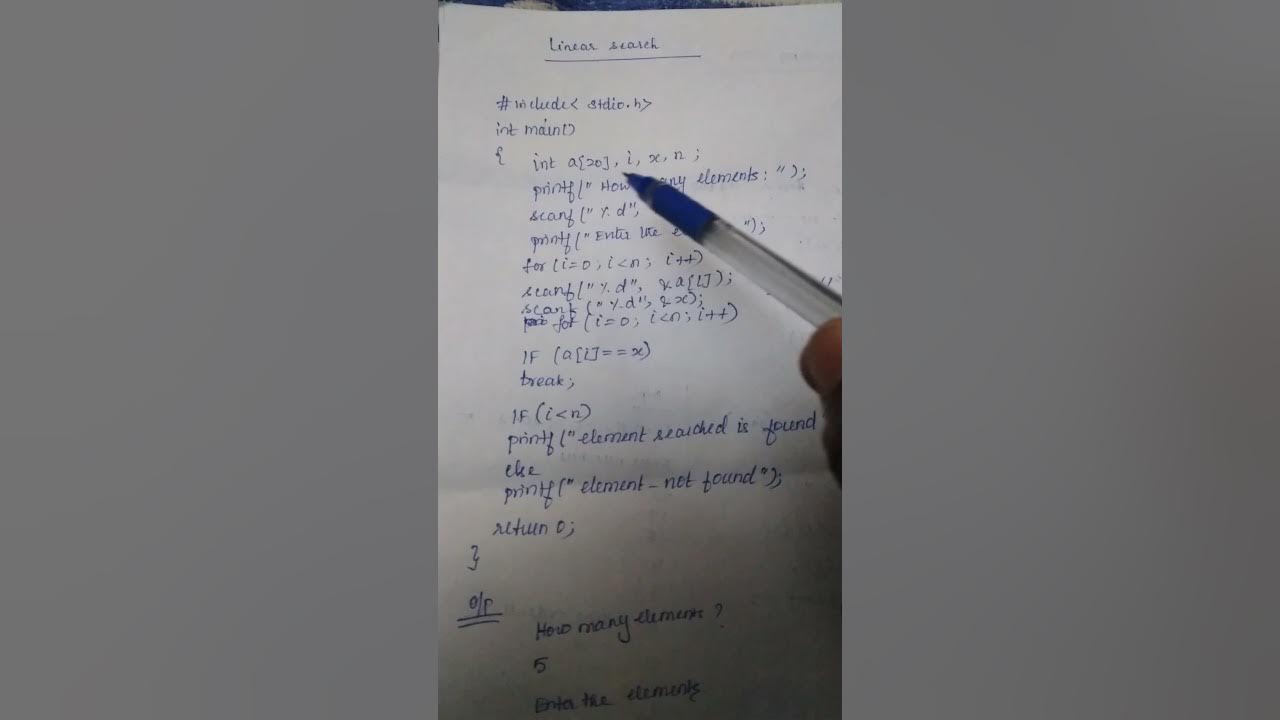 Linear search
#include< stdio.h>
int main()
{ int a[20], i, x, n ;
printf(" How many elements: ");
scanf(" %d",
printf(" Enter the ");
for(i=0; i<n; i++)
scanf(" %d", &a[i]);
scanf (" %d", &x);
for (i=0; i<n; i++)
IF (a[i]==x)
break;
IF(i<n)
printf("element searched is found
else
printf(" element - not found");
return 0;
}
O/P
How many elements ?
5
Enter the elements